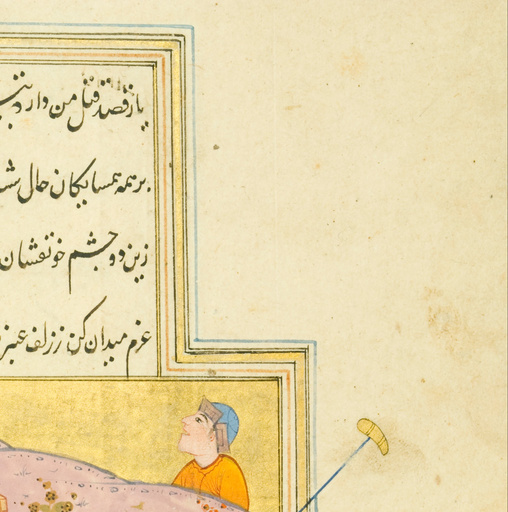 باز قصد قتل من دارد
بر همه همسایگان حال
زین دو چشم خونفشان
عزم میدان کن ز زلف